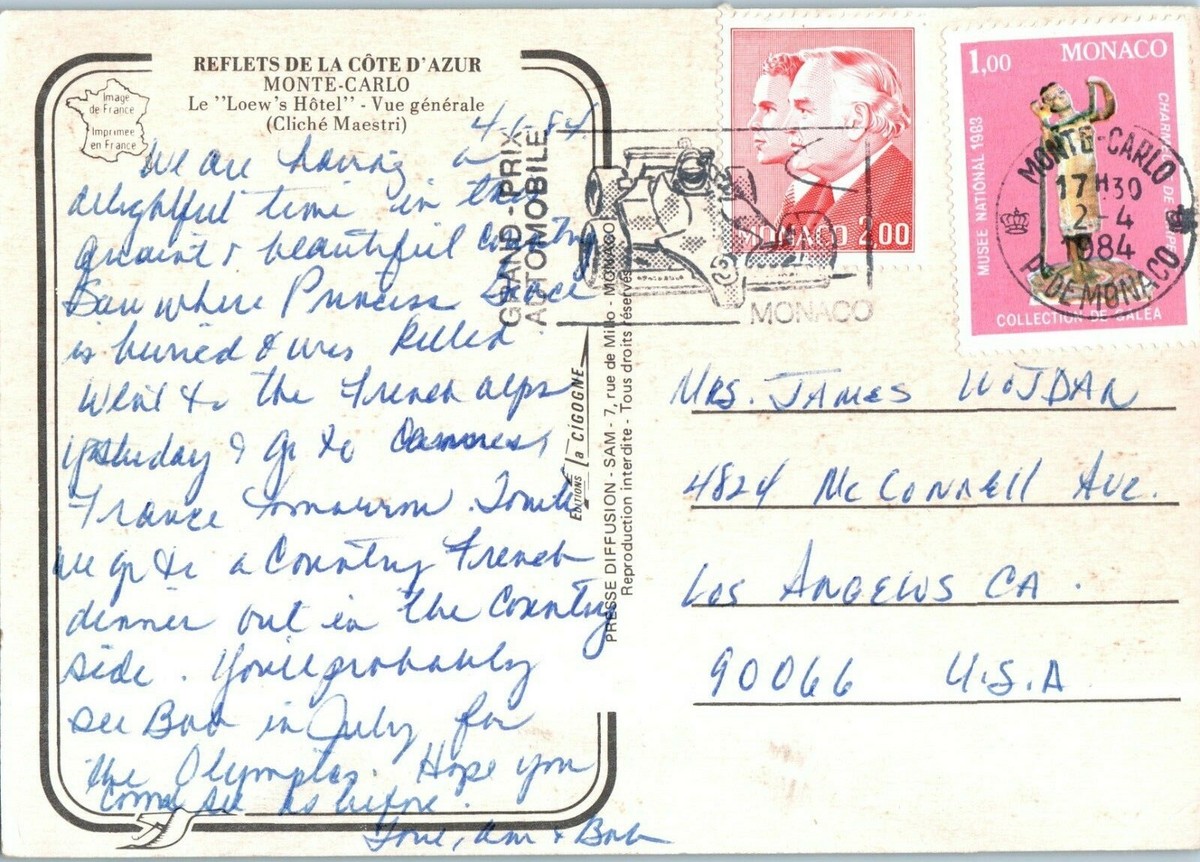 REFLETS DE LA CÔTE D'AZUR
MONTE-CARLO
Le "Loew's Hôtel" - Vue générale
(Cliché Maestri)
Image
de France
Imprimée
en France
4-1-84
We are having a
delightful time in this
quaint & beautiful country
Saw where Princess Grace
is buried & was killed
Went to the French alps
yesterday & go to Cannes,
France tomorrow. Tonite
we go to a Country French
dinner out in the Country
side. You'll probably
see Bob in July for
the Olympics. Hope you
come see us before.
Love, Ann & Bob
GRAND-PRIX
AUTOMOBILE
MONACO
EDITIONS la CIGOGNE
PRESSE DIFFUSION - SAM - 7, rue de Millo - MONACO
Reproduction interdite - Tous droits réservés
MONACO 2.00
1,00 MONACO
MUSEE NATIONAL 1983
COLLECTION DE GALEA
MONTE-CARLO
17H30
2-4
1984
PTE DE MONACO
MRS. JAMES WOJDAK
4824 McCONNELL AVE.
LOS ANGELES CA.
90066 U.S.A